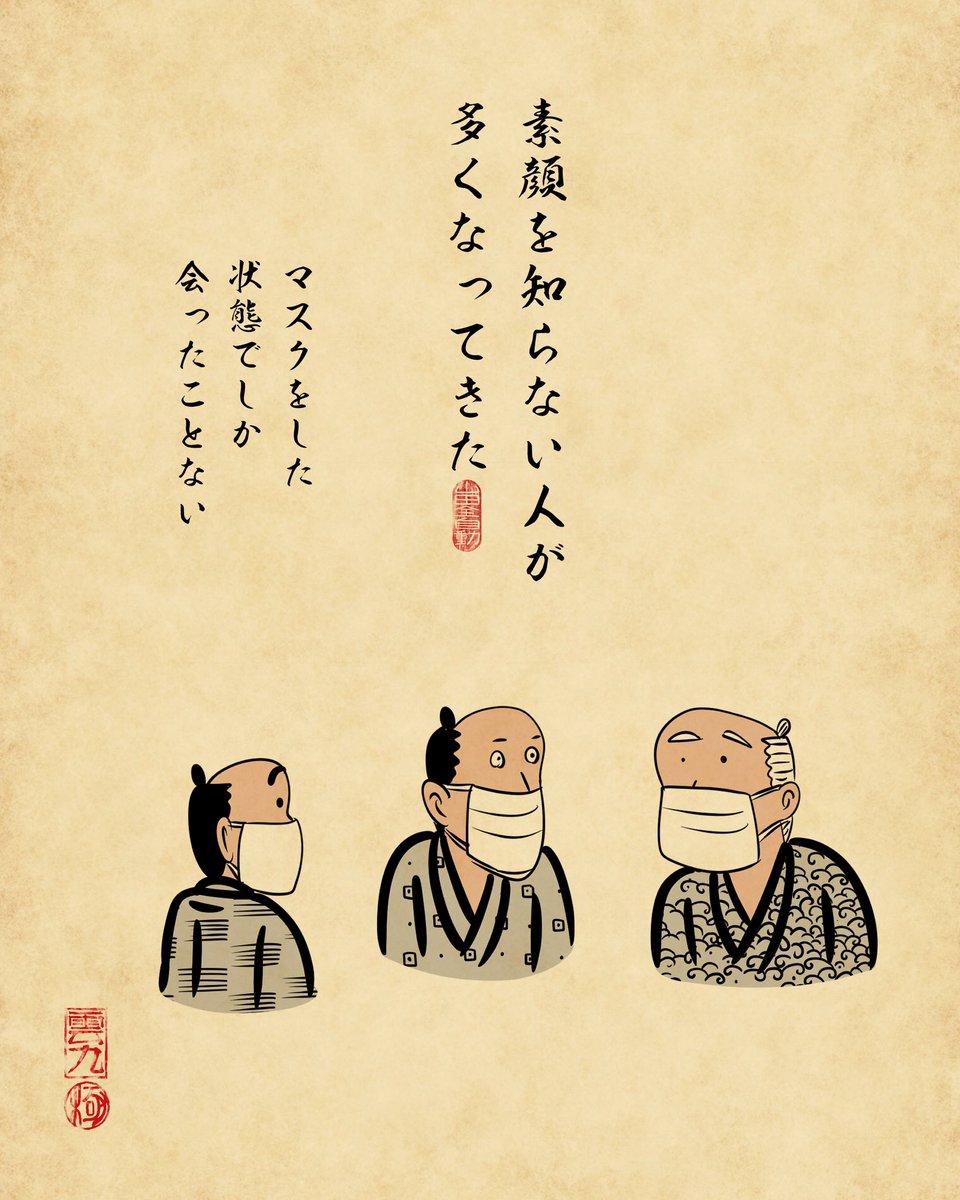 素顔を知らない人が
多くなってきた
マスクをした
状態でしか
会ったことない